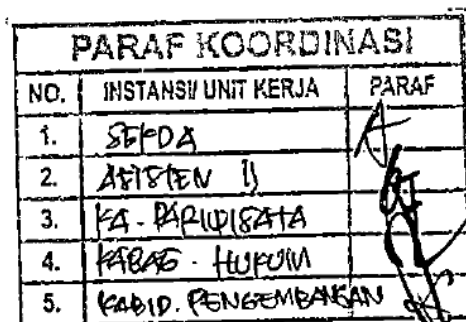 PARAF KOORDINASI
NO. INSTANSI/ UNIT KERJA PARAF
1. SEKDA
2. ASISTEN II
3. KA. PARIWISATA
4. KABAG. HUKUM
5. KABID. PENGEMBANGAN